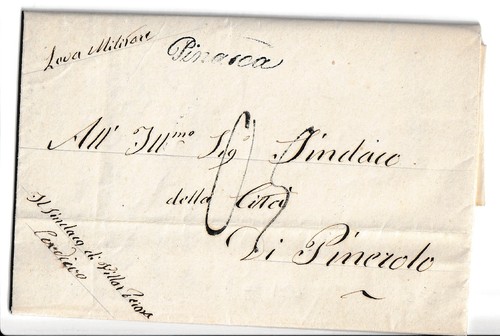 Leva Militare
Pinasca
All' Ill.mo Sig. Sindaco
della Città
Di Pinerolo
Il Sindaco di Villar Perosa